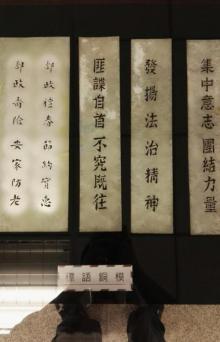 集中意志 團結力量
發揚法治精神
匪諜自首 不究既往
郵政儲券 節約實惠
郵政壽險 安家防老
標語銅模